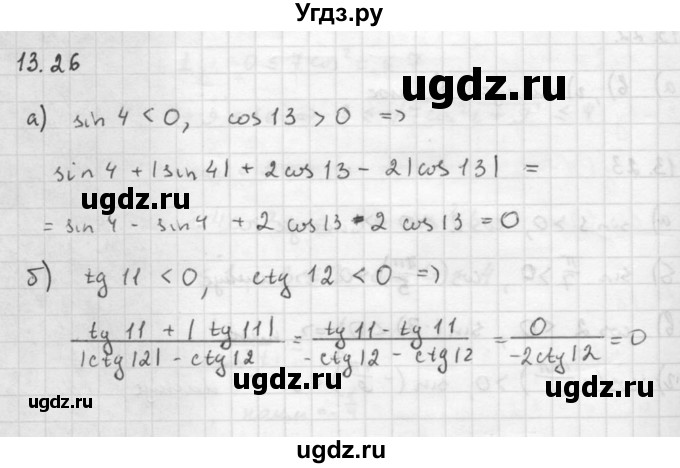 Угдз.ру
13.26
ugdz.ru
а) sin 4 < 0, cos 13 > 0 =>
sin 4 + |sin 4| + 2 cos 13 - 2|cos 13| =
ugdz.ru
= sin 4 - sin 4 + 2 cos 13 - 2 cos 13 = 0
ugdz.ru
б) tg 11 < 0, ctg 12 < 0 =>
(tg 11 + |tg 11|) / (|ctg 12| - ctg 12) = (tg 11 - tg 11) / (-ctg 12 - ctg 12) = 0 / (-2ctg 12) = 0
ugdz.ru
ugdz.ru
ugdz.ru